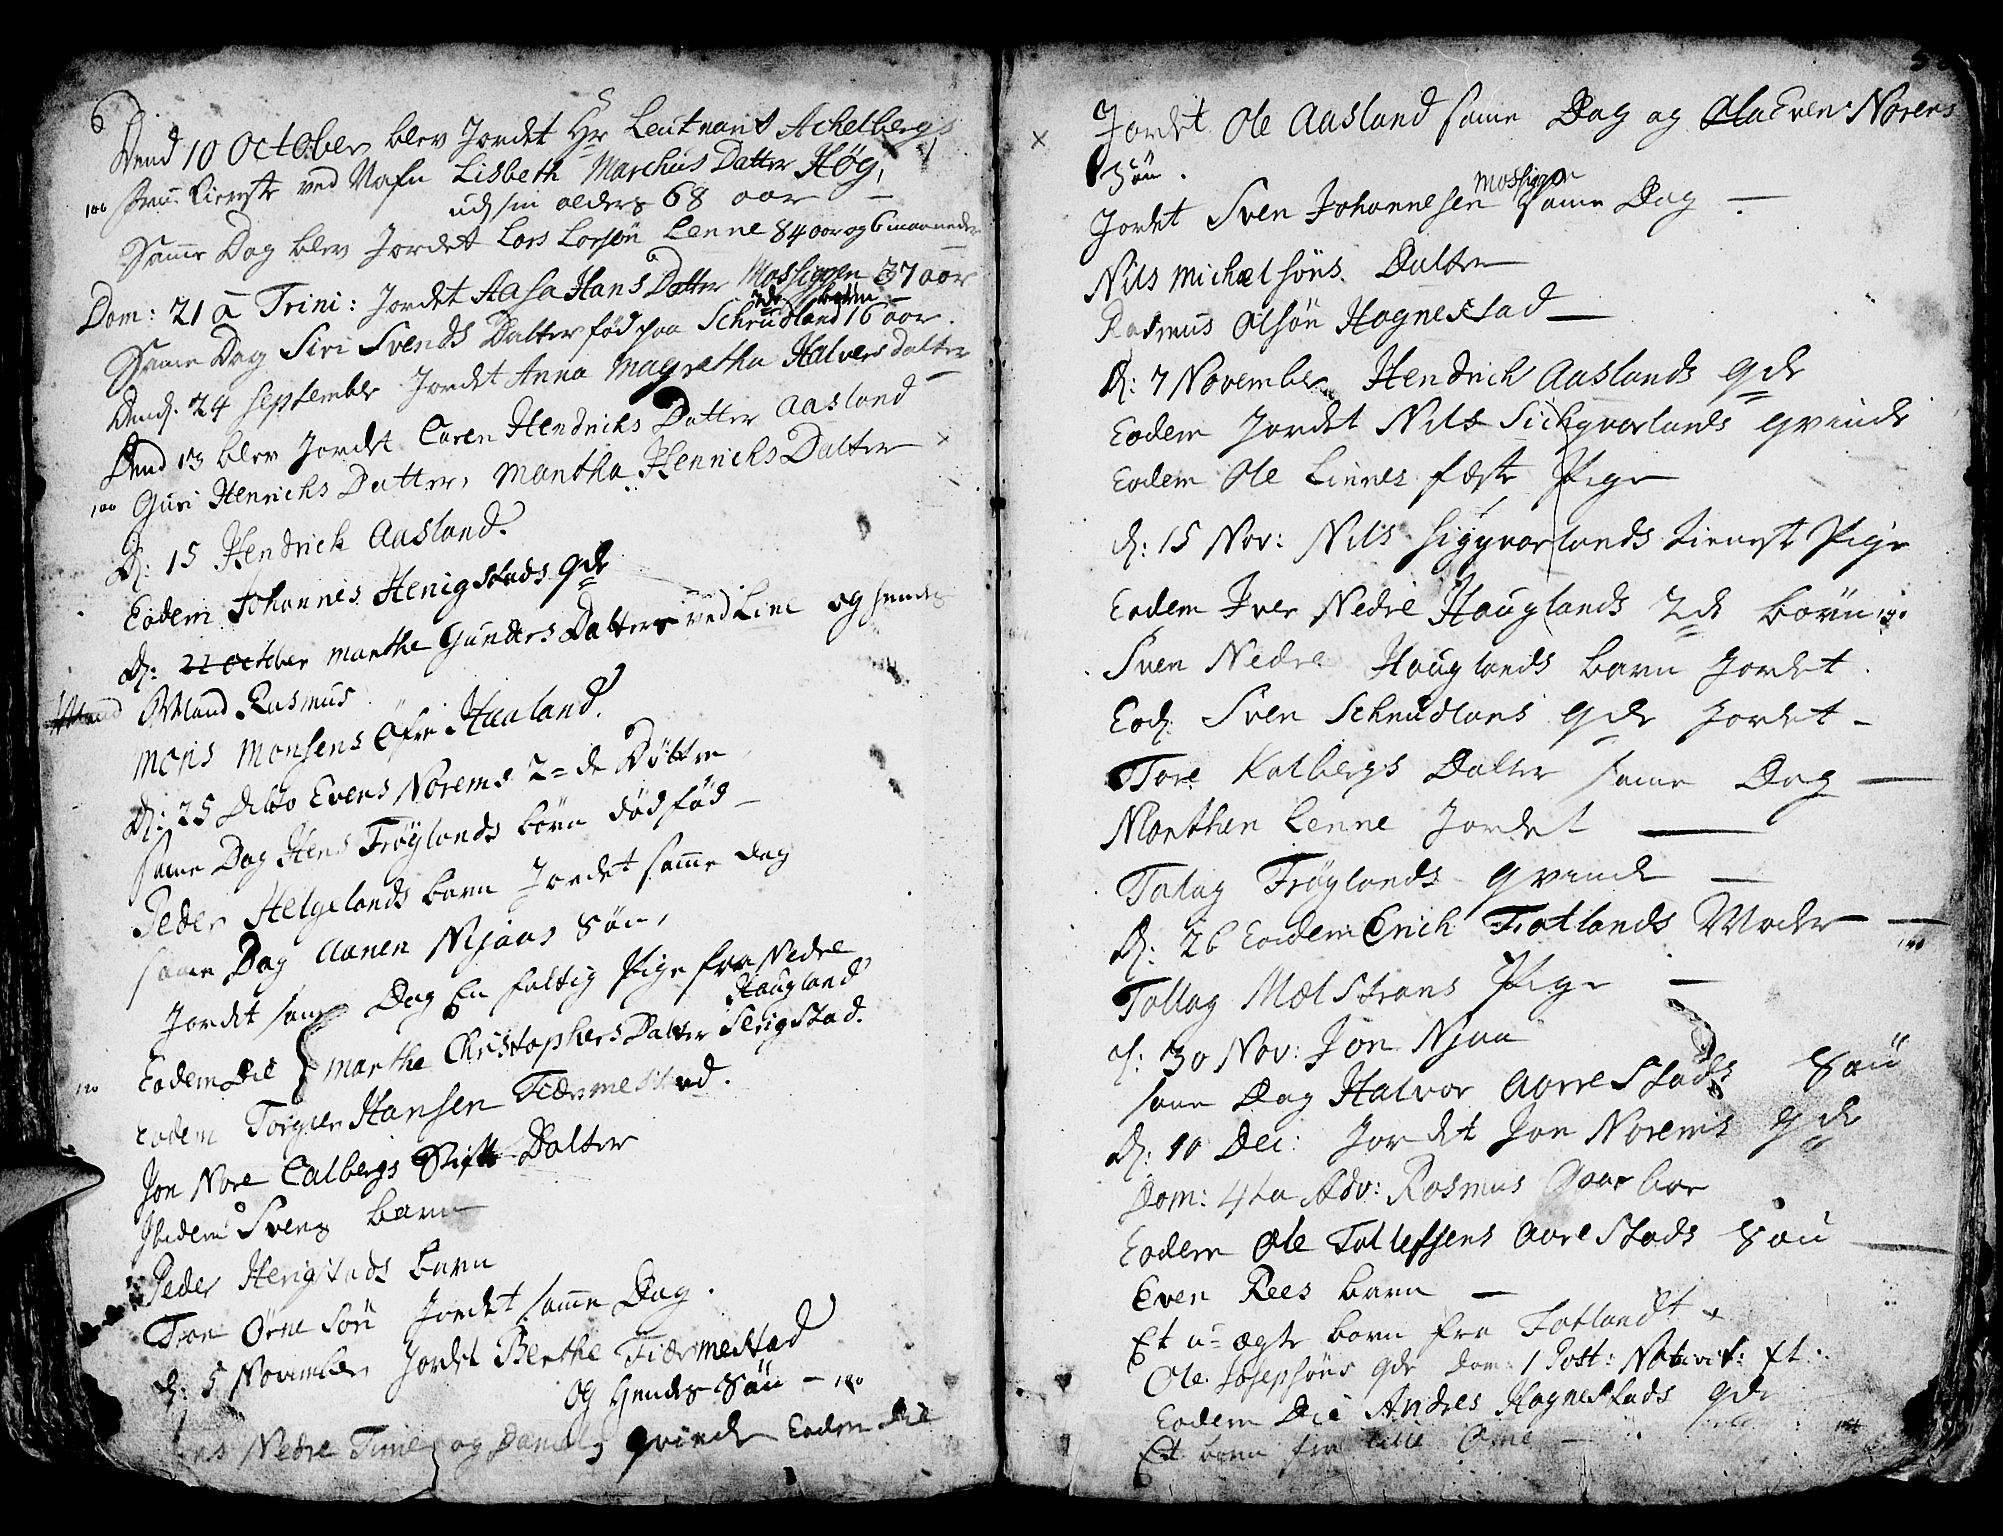 6
Dend 10 October blev Jordet Hr Leutnant Achelbergs
100 Frue Kierste ved Nafn Lisbeth Marchus Datter Høg,
udj sin alders 68 aar
Samme Dag blev Jordet Lars Larsøn Lenne 84 aar og 6 maaneder
Dom: 21 a Trini: Jordet Aasa Hans Datter Mossigen 37 aar
Same Dag Siri Svends Datter fød paa Schrudland 16 aar
Dend. 24 September Jordet Anna Magretha Halvers datter
Dend 13 blev Jordet Caren Hendrichs Datter Aasland
100 Guri Henrichs Datter, Mantha Henrichs Datter ×
D: 15 Hendrich Aasland.
Eodem Johannes Henigstads qde
D: 22 October Marthe Gunders Datter ved Line og hendes
Mand Mand Rasmus
Mons Monsens Øfre Haaland.
D: 25 Dito Evens Norems 2=de Døttre
Same Dag Hens Frøylands børn død fød —
Peder Helgelands barn Jordet samme dag
same Dag Aanen Njaas Søn,
Jordet same Dag En fattig Pige fra Nedre
Haugland
100 Eodem Die Marthe Christophers Datter Serigstad.
Eodem Torger Hansen Fiærmestad.
Jon Nore Calbergs Stif Datter
Ibidem Svens barn
Peder Herigstads barn
Tron Ørne Søn Jordet samme Dag.
D: 5 November Jordet Berthe Fiærmestad
og hendes Søn — 100
Nedre Time og Daniels qvinde Eodem Die
× Jordet Ole Aasland same Dag og Ola Even Norens
Søn.
Mossigen
Jordet Sven Johannesen Same Dag —
Nils Michelsøns Datter
Rasmus Olsøn Hognestad —
D: 7 November Hendrich Aaslands qde
Eodem Jordet Nils Sichqvarlands qvinde
Eodem Ole Linnes fæste Pige
d: 15 Nov: Nils Siggvarlands Tienest Pige
Eodem Iver Nedre Hauglands 2de børn
Sven Nedre Hauglands barn Jordet.
Eod: Sven Schrudlans qde Jordet —
Tore Kalbergs Datter same Dag —
Marthen Lenne Jordet —
Tolag Frøylands qvinde —
D: 26 Eodem Erich Fotlands Moder —
Tollag Mælstrans Pige —
d: 30 Nov: Jon Njaa
same Dag Halvor Aarrestads Søn
D: 10 Dec: Jordet Jon Norems qde
Dom: 4ta Adv: Rasmus Gaarbor
Eodem Ole Tollefsens Aarestads Søn —
Even Rees barn —
Et u=ægte barn fra Fotlandt
Ole Josephøns qde Dom: 1 Post: Nativit: Et:
Eodem Die Andres Hognestads qde
Et barn fra Lille Ome —